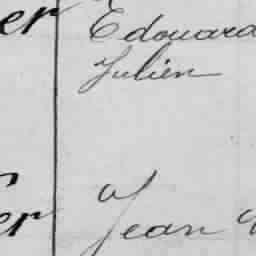 er Edouard
Julien
er Jean